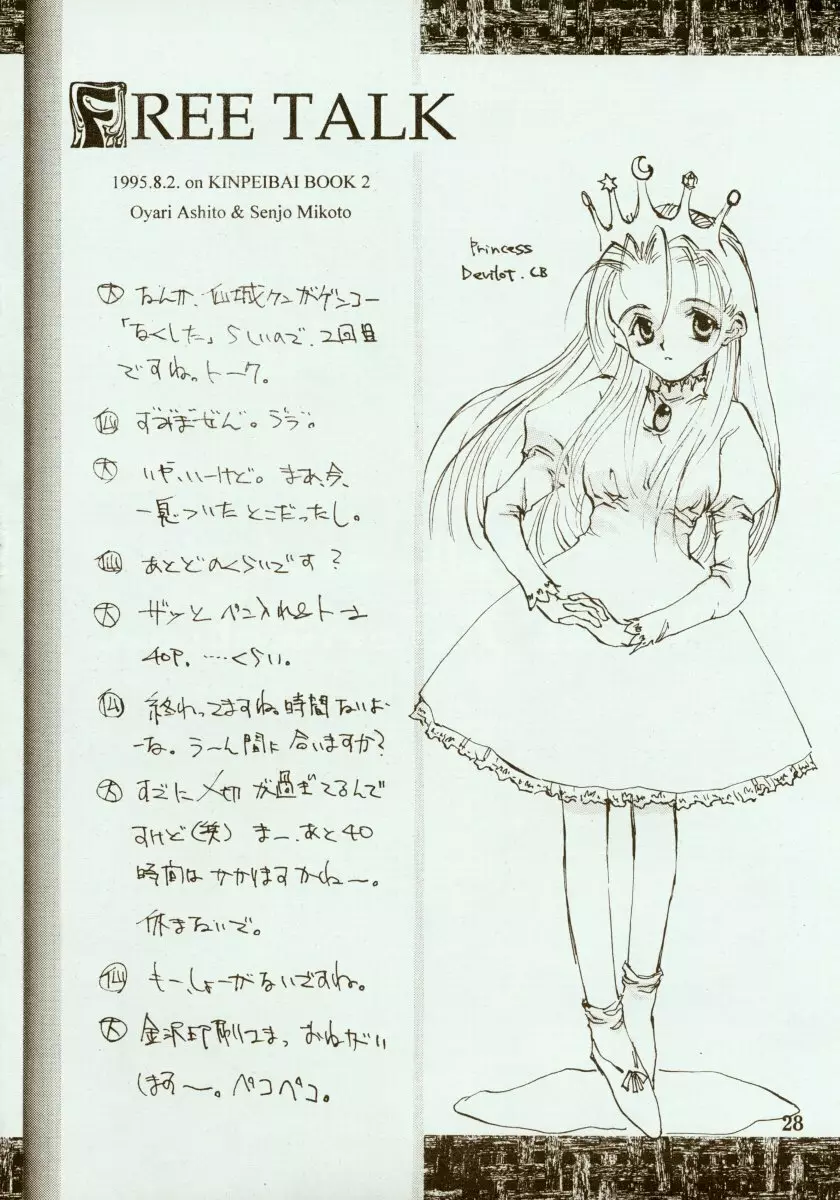 FREE TALK
1995.8.2. on KINPEIBAI BOOK 2
Oyari Ashito & Senjo Mikoto
Princess
Devilot. CB
大 なんか、仙城クンがゲンコー
「なくした」らしいので、2回目
ですね。トーク。
仙 ずみまぜん。ううう゛。
大 いや、いーけど。まあ、今、
一息ついたとこだったし。
仙 あとどのくらいです?
大 ザッと ペン入れ&トーン
40P. ‥‥くらい。
仙 終わってますね。時間ないよー
な。うーん間に合いますか?
大 すでに〆切が過ぎてるんで
すけど(笑) まー、あと40
時間はかかりますかね〜。
休まないで。
仙 もー、しょーがないですね。
大 金沢印刷さまっ おねがい
します〜。ペコペコ。
28